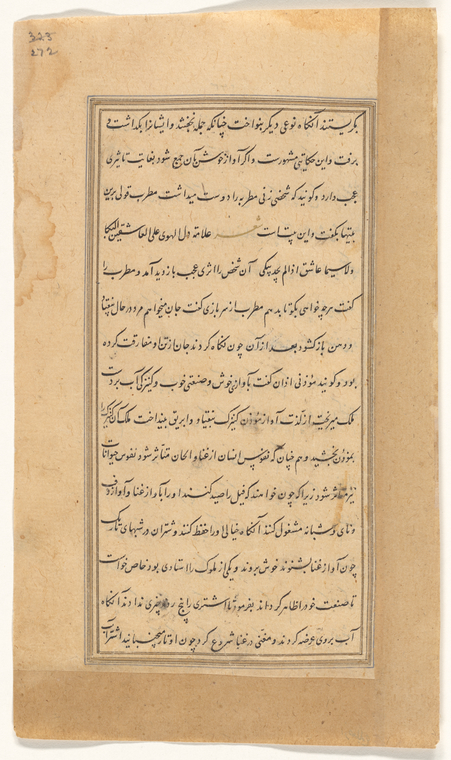 323
272
بگریستند آنگاه نوعی دیگر بنواخت چنانکه جمله بخفتند و ایشانرا بگذاشت و
برفت و این حکایتی مشهورست و اگر آواز خوش با آن جمع شود بغایت تاثیری
عجب دارد و گویند که شخصی زنی مطربه را دوست میداشت مطرب قولی برین
بیتها بگفت و این بیت است شعر علامة ذل الهوی علی العاشقین البکا
ولا سیما عاشق اذا لم یجد مشتکی آن شخص را اثری عجب بازدید آمد و مطرب را
گفت هرچه خواهی بگو تا بدهم مطرب از سر بازی گفت جان میخواهم مرد در حال بیفتاد
و دهن باز کشود بعد از آن چون نگاه کردند جان از تن او مفارقت کرده
بود و گویند مؤذنی اذان گفت بآوازی خوش و صنعتی خوب و کنیزکی آب بر دست
ملک میریخت از لذت آواز مؤذن کنیزک بیفتاد و ابریق بینداخت ملک آن کنیزک را
بمؤذن بخشید و هم چنان که نفوس انسان از غنا و الحان متاثر شود نفوس حیوانات
نیز متاثر شود زیرا که چون خواهند که فیل را صید کنند او را بآواز غنا و آواز دف
و نای در شبانه مشغول کنند آنگاه خیالی او را حفظ کنند و شتران در شبهای تاریک
چون آواز غنا بشنوند خوش بروند و یکی از ملوک را استادی بود خاص خواست
تا صنعت خود را ظاهر گرداند بفرمود تا اشتری را پنج روز چیزی ندادند آنگاه
آب بروی عرضه کردند و مغنی در غنا شروع کرد چون او تار میجنبانید اشتر آب